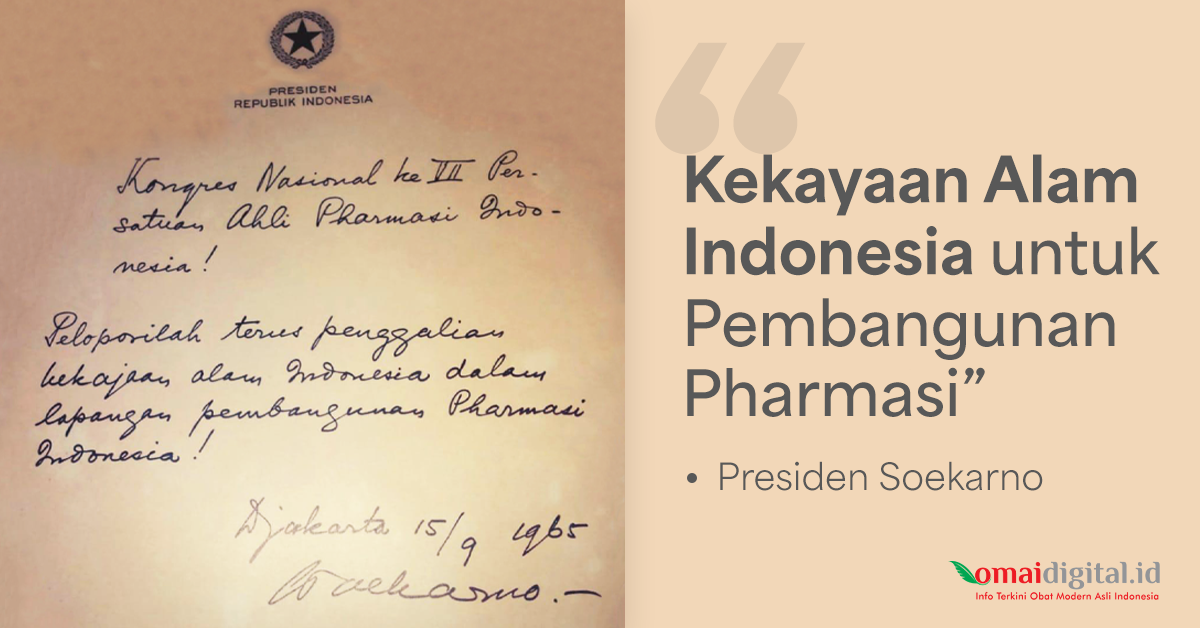 PRESIDEN
REPUBLIK INDONESIA
Kongres Nasional ke VII Per-
satuan Ahli Pharmasi Indo-
nesia!
Peloporilah terus penggalian
kekajaan alam Indonesia dalam
lapangan pembangunan Pharmasi
Indonesia!
Djakarta 15/9 1965
Soekarno.—
“
Kekayaan Alam
Indonesia untuk
Pembangunan
Pharmasi”
• Presiden Soekarno
omaidigital.id
Info Terkini Obat Modern Asli Indonesia